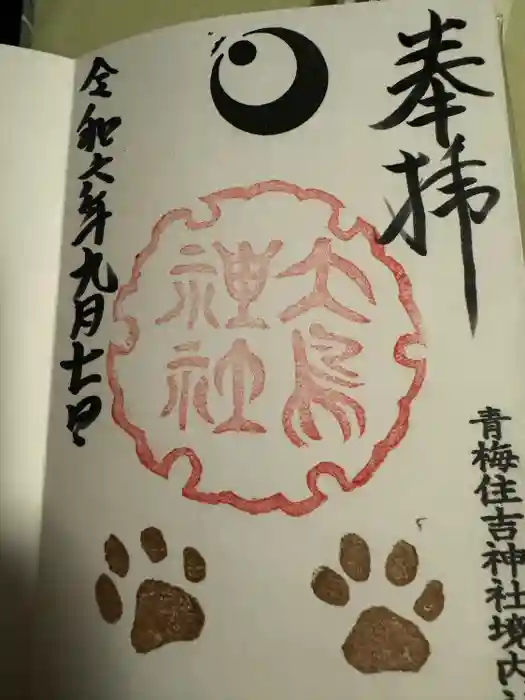 奉拝
青梅住吉神社境内
大鳥
神社
令和六年九月七日